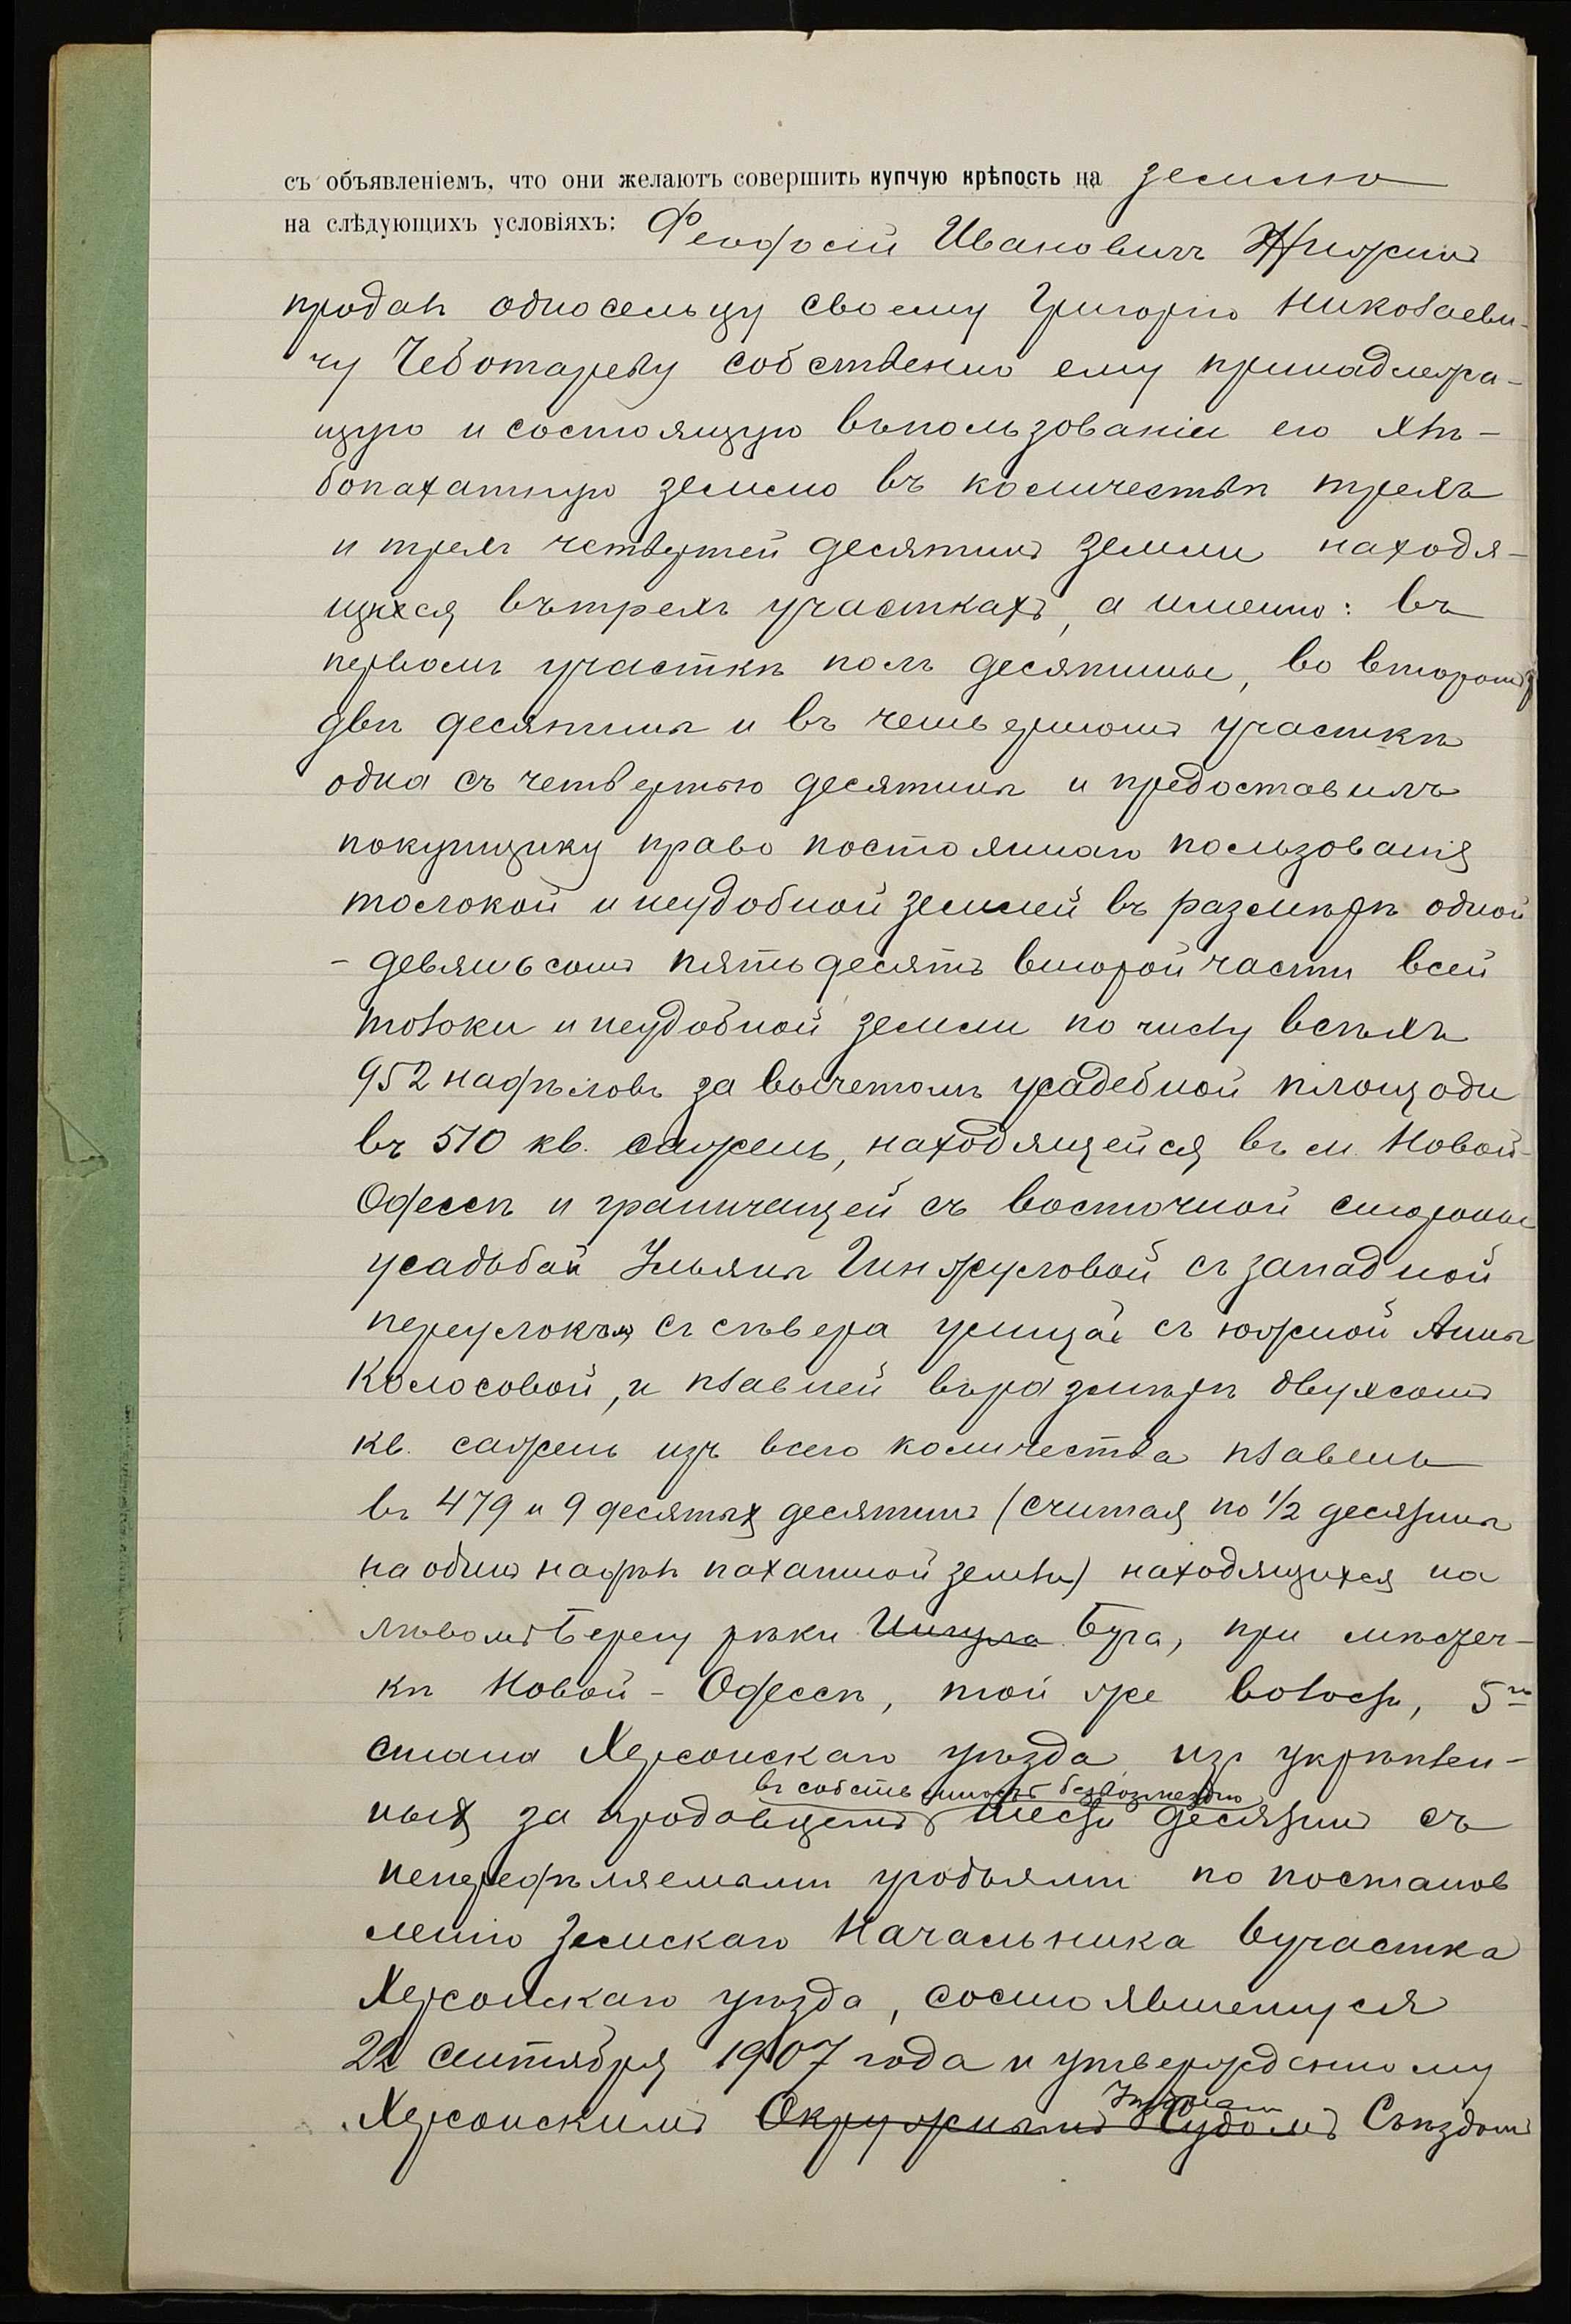 съ объявленіемъ, что они желаютъ совершить купчую крѣпость на землю
на слѣдующихъ условіяхъ: Феодосій Ивановичъ
продалъ односельцу своему Григорію Николаеви-
чу Чеботареву собственно ему принадлежа-
щую и состоящую въ пользованіи его хлѣ-
бопахатную землю въ количествѣ трехъ
и трехъ четвертей десятинъ земли находя-
щихся въ трехъ участкахъ, а именно: въ
первомъ участкѣ полъ десятины, во второмъ
двѣ десятины и въ четвертомъ участкѣ
одна съ четвертью десятины и предоставилъ
покупщику право постояннаго пользованія
толокой и неудобной землей въ размѣрѣ одной
- девятьсотъ пятьдесятъ второй части всей
толоки и неудобной земли по числу всѣхъ
952 надѣловъ за вычетомъ усадебной площади
въ 510 кв. сажень, находящейся въ м. Новой-
Одессѣ и граничащей съ восточной стороны
усадьбой Ульяны съ западной
переулокъ съ сѣвера улица съ южной Анны
Колосовой, и плавней въ размѣрѣ двухсотъ
кв. сажень изъ всего количества плавень
въ 479 и 9 десятыхъ десятинъ (считая по 1/2 десятины
на одинъ надѣлъ пахатной земли) находящихся на
лѣвомъ берегу рѣки Ингула Буга, при мѣстеч-
кѣ Новой-Одессѣ, той же волости, 5го
стана Херсонскаго уѣзда изъ укрѣплен-
въ собственность безвозмездно
ныхъ за продавцемъ шести десятинъ съ
непередѣляемыми угодьями по постанов
ленію Земскаго Начальника 6 участка
Херсонскаго уѣзда, состоявшемуся
22 сентября 1907 года и утвержденному
Уѣзднымъ
Херсонскимъ Окружнымъ Судомъ Съѣздомъ